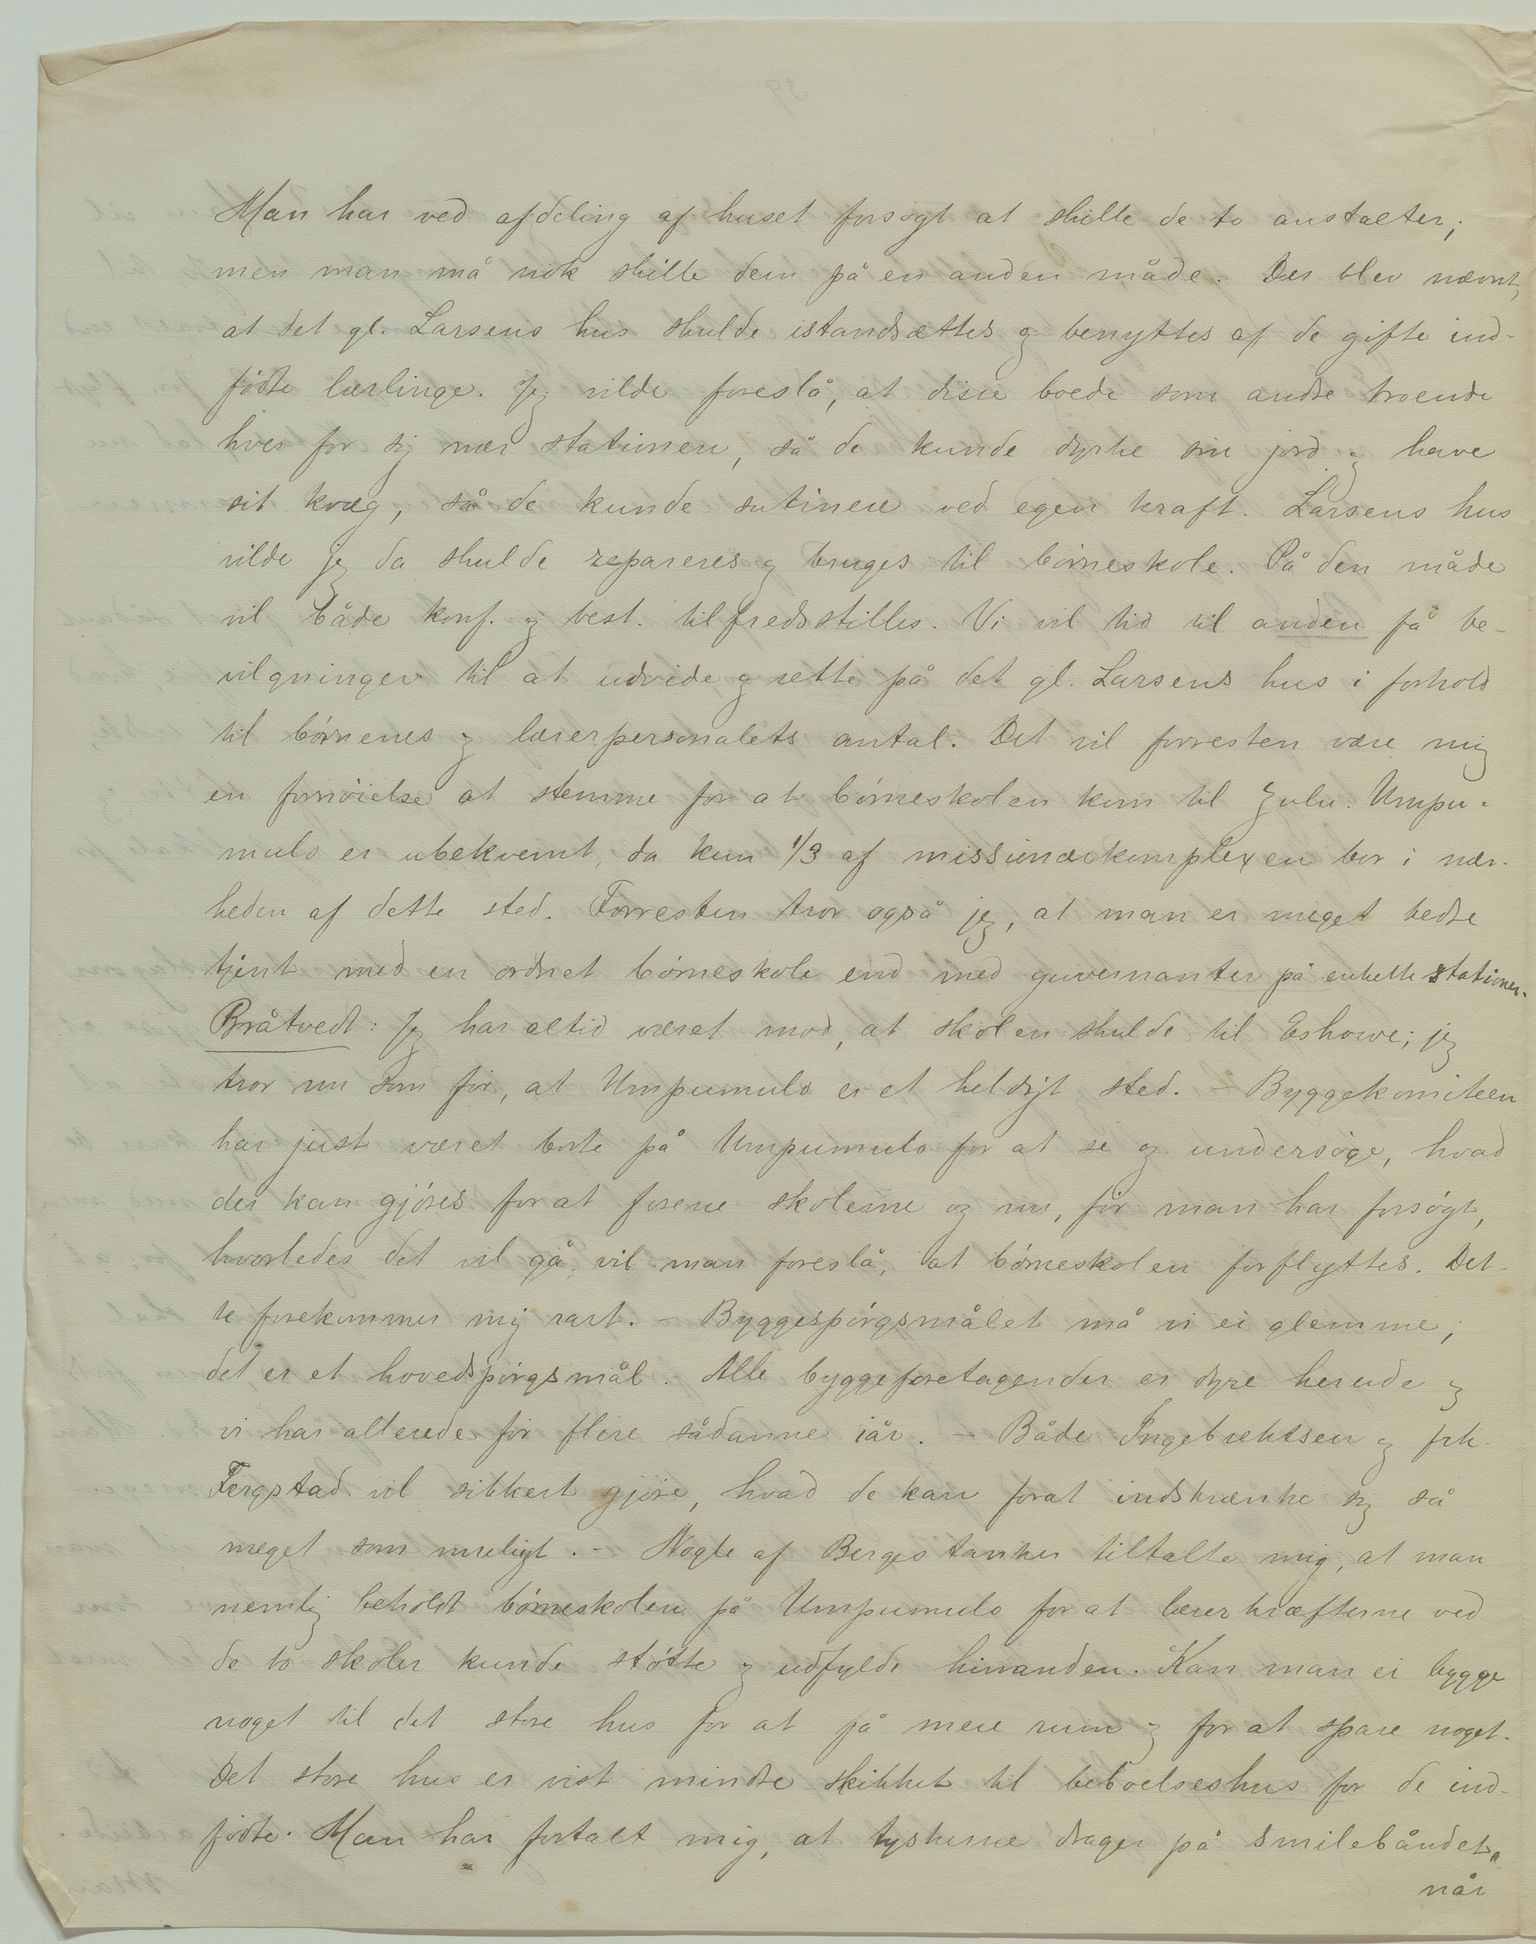 Man har ved afdeling af huset forsøgt at skille de to anstalter;
men man må nok skille dem på en anden måde. Der blev nævnt,
at det gl. Larsens hus skulde istandsættes og benyttes af de gifte ind-
fødte lærlinge. Jeg vilde foreslå, at disse boede som andre troende
hver for sig nær stationen, så de kunde dyrke sin jord og have
sit kvæg, så de kunde sutinere ved egen kraft. Larsens hus
vilde jeg da skulde repareres og bruges til børneskole. På den måde
vil både konf. og best. tilfredsstilles. Vi vil tid til anden få be-
vilgninger til at udvide og rette på det gl. Larsens hus i forhold
til børnenes og lærerpersonalets antal. Det vil forresten være mig
en fornøielse at stemme for at børneskolen kom til Zulu. Umpu-
mulo er ubekvemt, da kun 1/3 af missionærkomplexen bor i nær-
heden af dette sted. Forresten tror også jeg, at man er meget bedre
tjent med en ordnet børneskole end med guvernanter på enkelte stationer.
Bråtvedt: Jeg har altid været mod, at skolen skulde til Eshowe; jeg
tror nu som før, at Umpumulo er et heldigt sted. – Byggekomiteen
har just været borte på Umpumulo for at se og undersøge, hvad
der kan gjøres for at forene skolerne og nu, før man har forsøgt,
hvorledes det vil gå, vil man foreslå, at børneskolen forflyttes. Det-
te forekommer mig rart. – Byggespørgsmålet må vi ei glemme;
det er et hovedspørgsmål. Alle byggeforetagender er dyre herude og
vi har allerede før flere sådanne iår. – Både Ingebrektsen og frk.
Fergstad vil sikkert gjøre, hvad de kan forat indskrænke sig så
meget som muligt. – Nogle af Berges tanker tiltalte mig, at man
nemlig beholdt børneskolen på Umpumulo for at lærerkræfterne ved
de to skoler kunde støtte og udfylde hinanden. Kan man ei bygge
noget til det store hus for at få mere rum og for at spare noget.
Det store hus er vist mindre skikket til beboelseshus for de ind-
fødte. Man har fortalt mig, at tyskerne drager på smilebåndet,
når